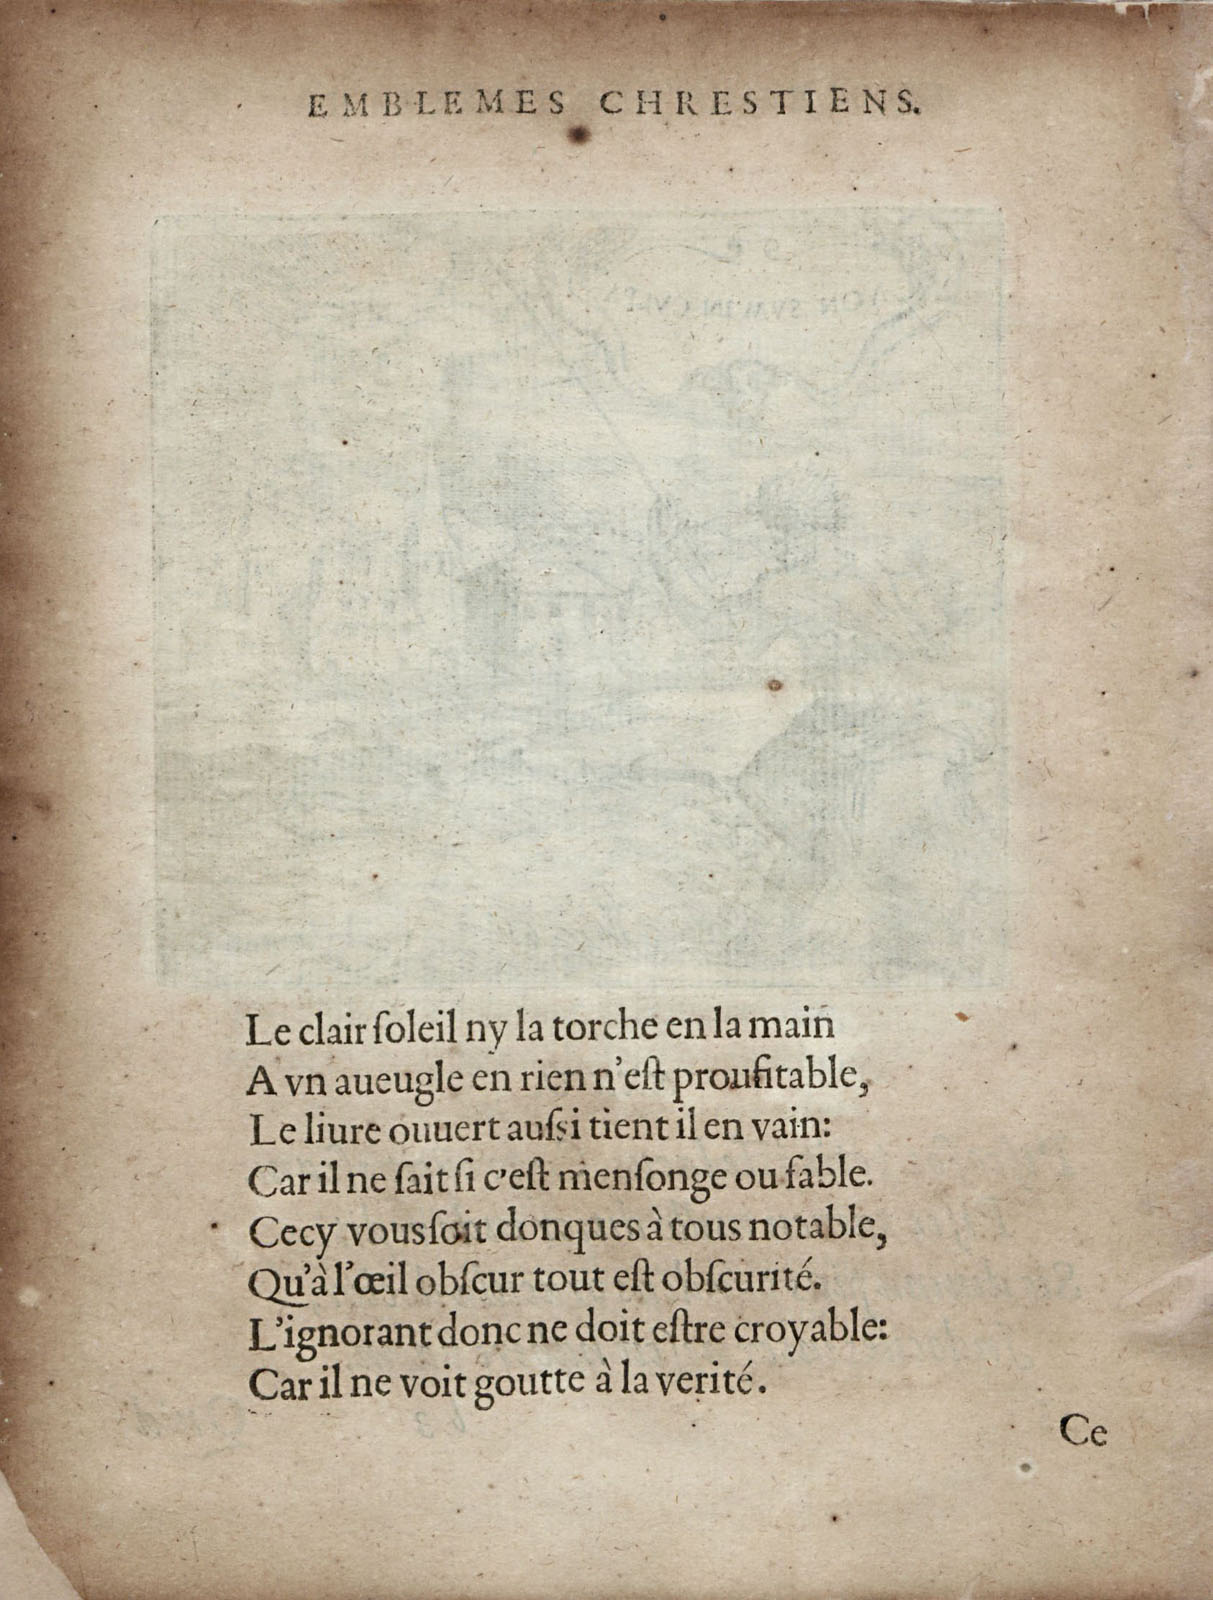 EMBLEMES CHRESTIENS.
Le clair ſoleil ny la torche en la main
A vn aueugle en rien n'eſt proufitable,
Le liure ouuert auſsi tient il en vain:
Car il ne ſait ſi c'eſt menſonge ou fable.
Cecy vous ſoit donques à tous notable,
Qu'à l'œil obſcur tout eſt obſcurité.
L'ignorant donc ne doit eſtre croyable:
Car il ne voit goutte à la verité.
Ce